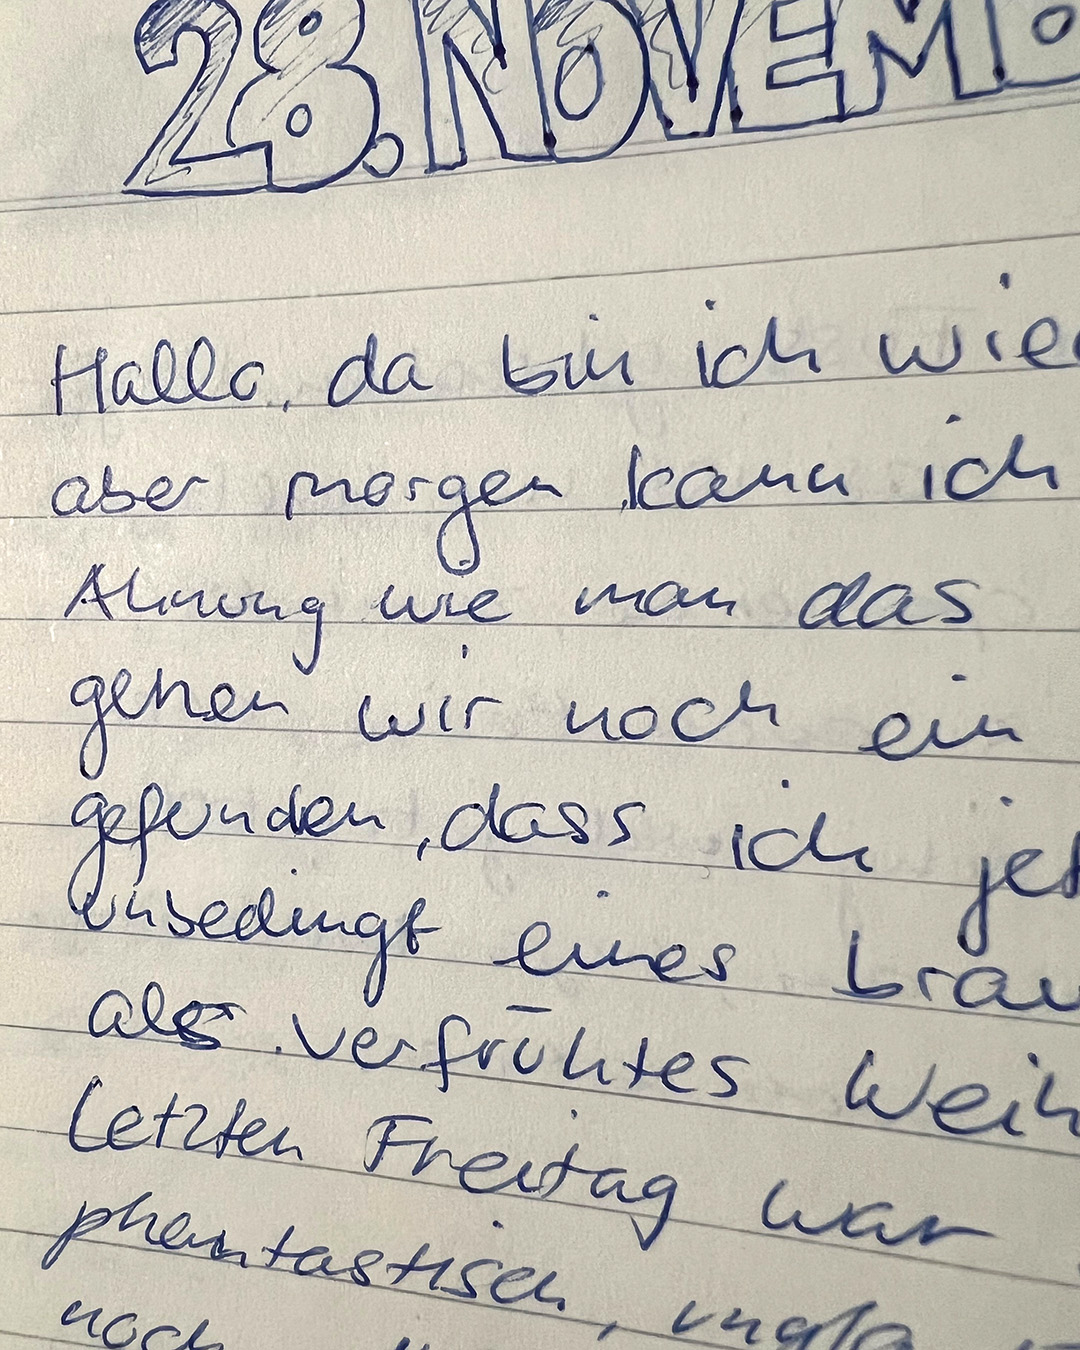 28. NOVEMB
Hallo, da bin ich wied
aber morgen kann ich
Ahnung wie man das
gehen wir noch ein
gefunden, dass ich jet
unbedingt eines brau
als verfrühtes Weih
Letzten Freitag war
phantastisch,
noch